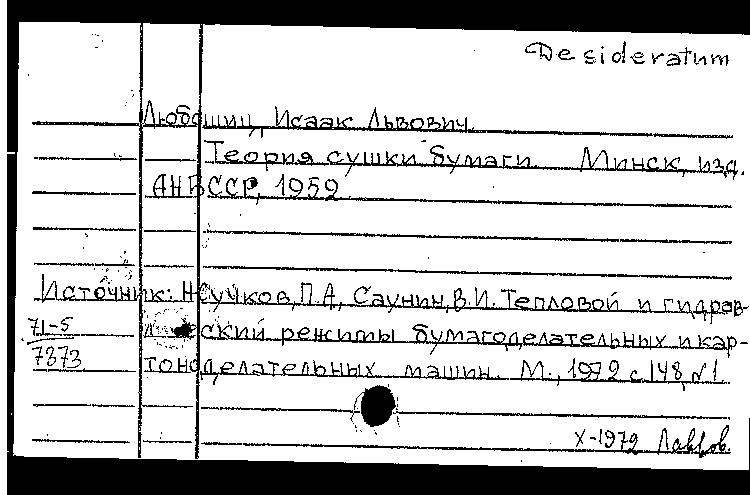 Desideratum
Любошиц, Исаак Львович.
Теория сушки бумаги. Минск, изд.
АНБССР, 1959
Источник: Жучков, П.А, Саунин, В.И. Тепловой и гидрав-
лический режимы бумагоделательных и кар-
71-5
7373
тоноделательных машин. М., 1972 с.148, №1
X-1972 Лавров